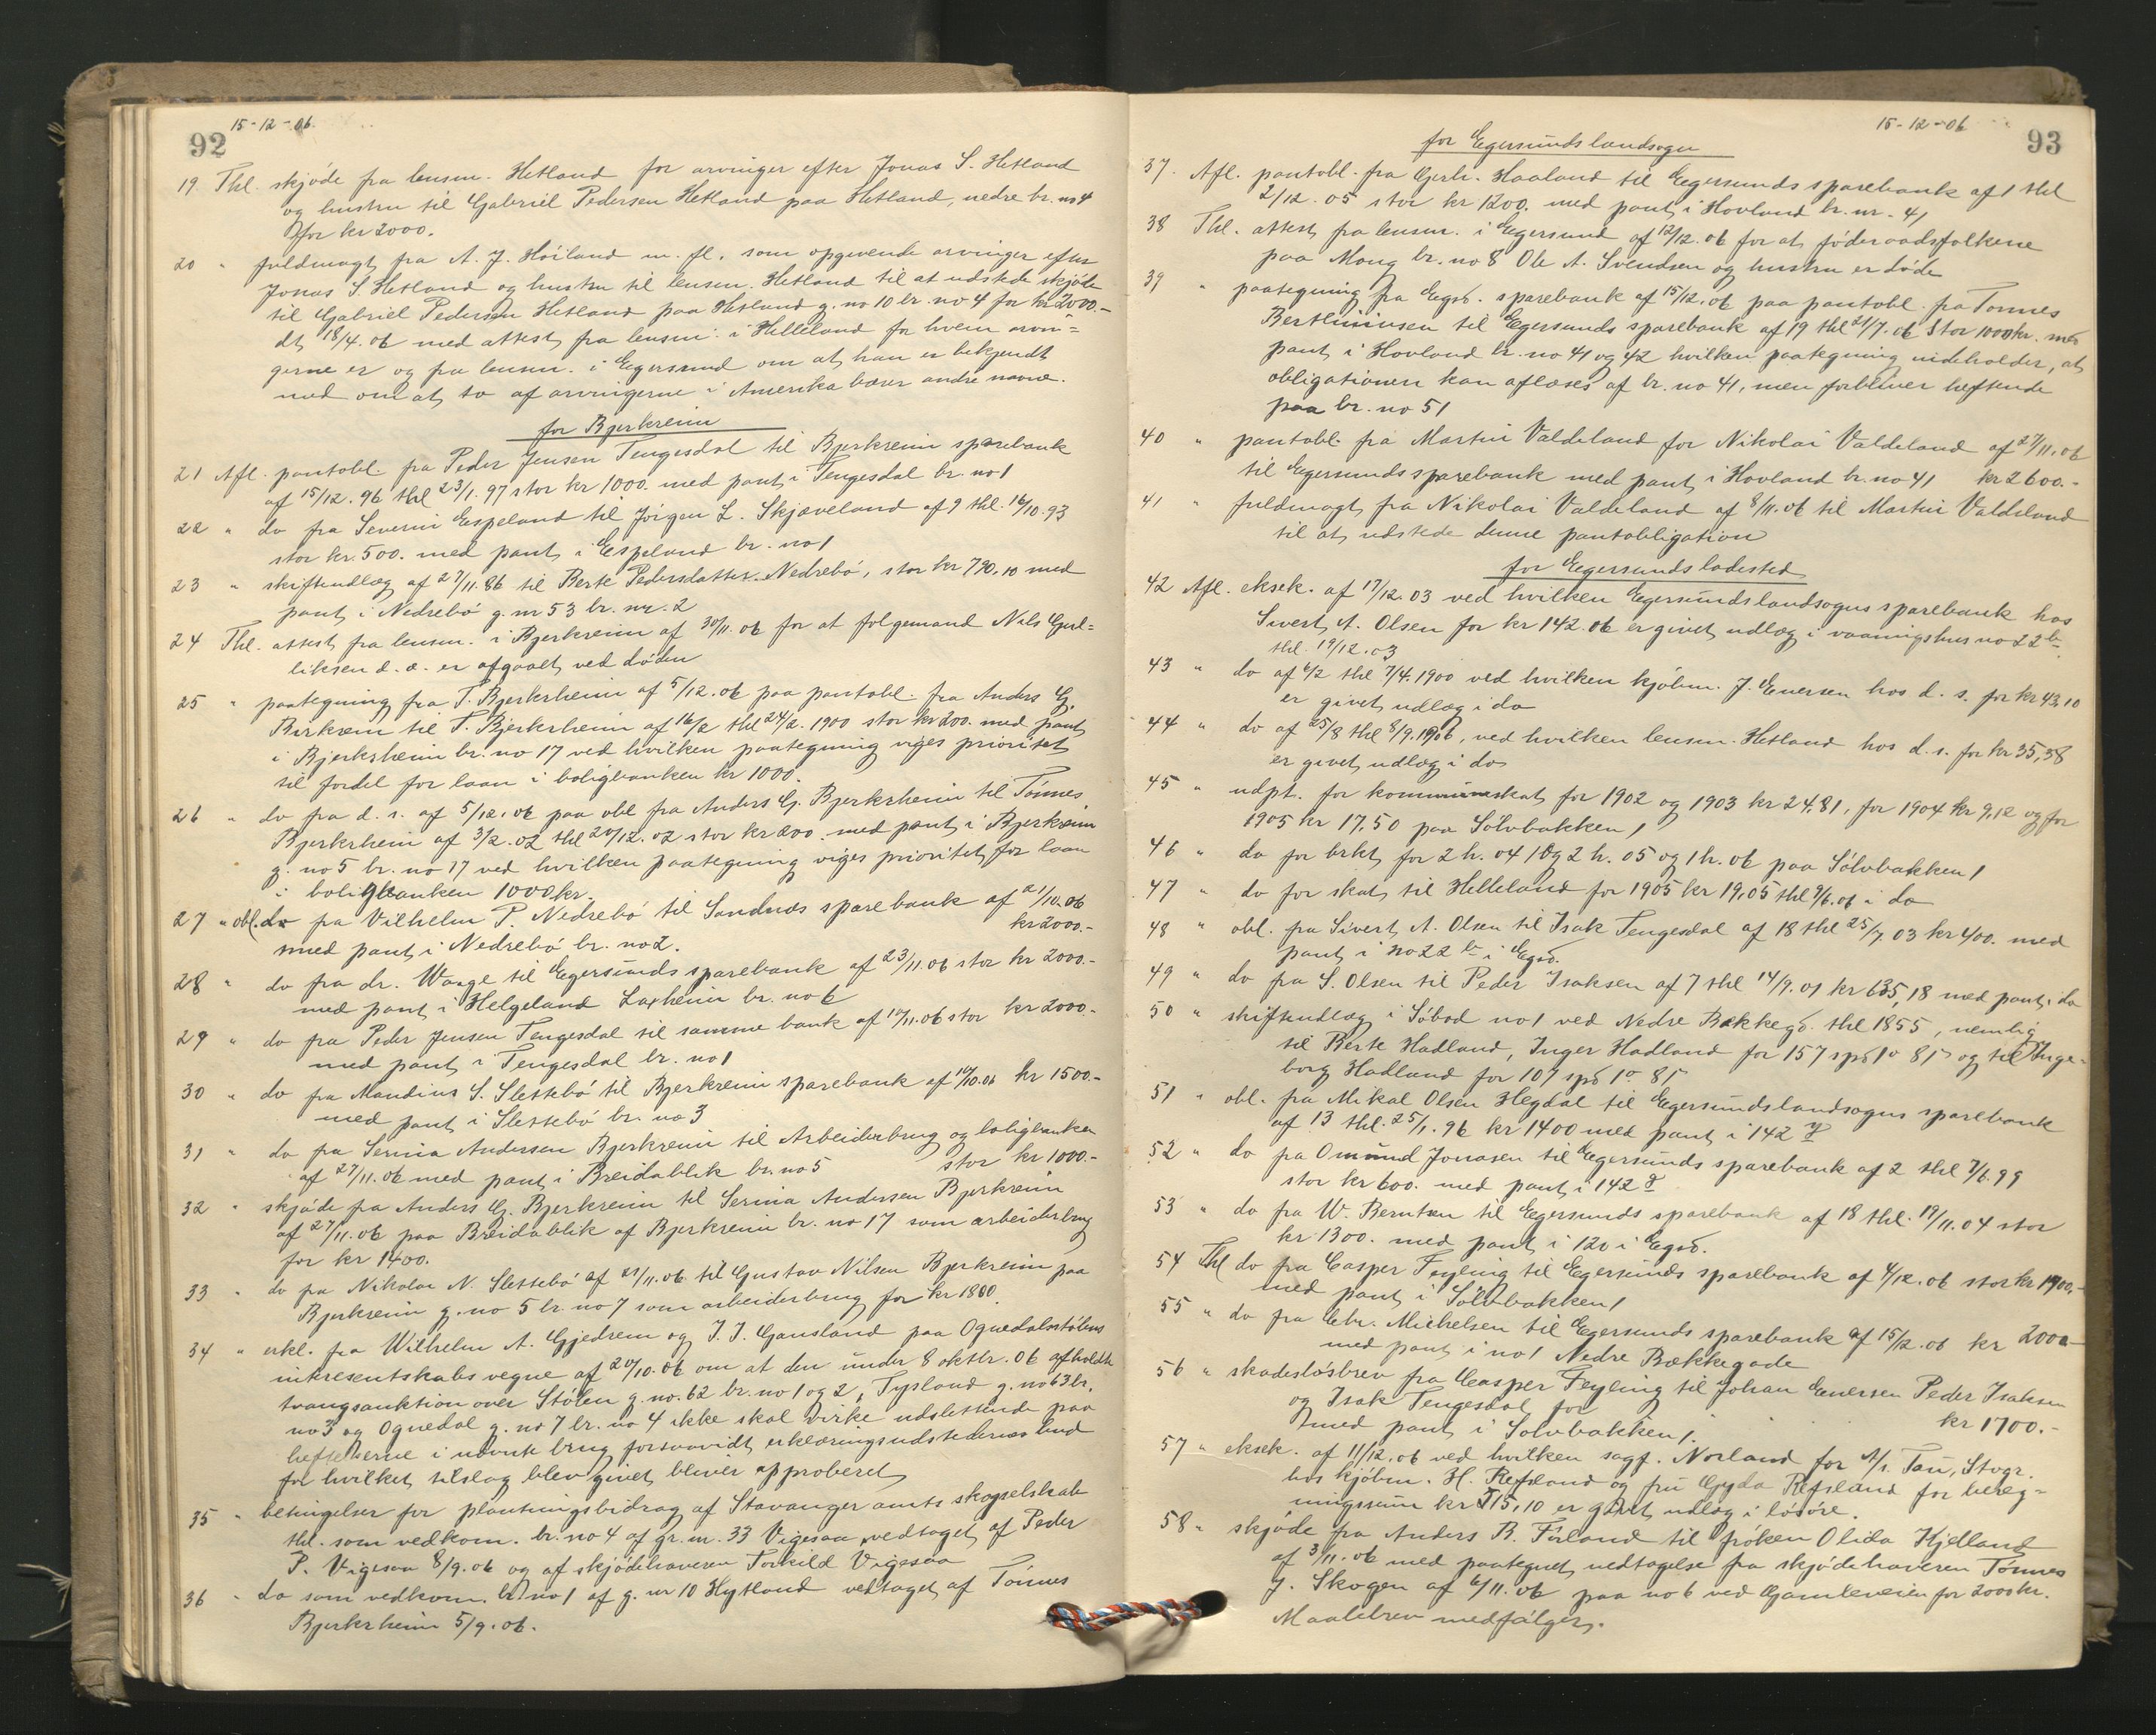 92
15-12-06.
19. Thl. skjøde fra lensm. Hetland for arvinger efter Jonas S. Hetland
og hustru til Gabriel Pedersen Hetland paa Hetland, nedre br. no 4
for kr 2000.
20 " fuldmagt fra A. J. Høiland m. fl. som opgivende arvinger efter
Jonas S. Hetland og hustru til lensm. Hetland til at udstede skjøde
til Gabriel Pedersen Hetland paa Hetland g. no 10 br. no 4 for kr 2000.-
dt. 18/4. 06 med attest fra lensm. i Helleland for hvem arvin=
gerne er og fra lensm. i Egersund om at han er bekjendt
med om at to af arvingerne i Amerika bærer andre navne.
for Bjerkreim
21 Afl. pantobl. fra Peder Jensen Tengesdal til Bjerkreim sparebank
af 15/12. 96 thl 23/1. 97 stor kr 1000. med pant i Tengesdal br. no 1
22 " do fra Severin Espeland til Jörgen L. Skjæveland af 9 thl. 16/10.93
stor kr. 500. med pant i Espeland br. no 1
23 " skifteudlæg af 27/11. 86 til Berte Pedersdatter Nedrebö, stor kr 790.10 med
pant i Nedrebö g. nr 53 br. nr. 2
24 Thl. attest fra lensm. i Bjerkreim af 30/11. 06 for at folgemand Nils Gul=
liksen d. æ. er afgaaet ved døden
25 " paategning fra T. Bjerkrheim af 5/12. 06 paa pantobl. fra Anders G.
Birkrem til T. Bjerkrheim af 16/2 thl 24/2. 1900 stor kr 200. med pant
i Bjerkrheim br. no 17 ved hvilken paategning viges prioritet
til fordel for laan i boligbanken kr 1000.
26 " do fra d. s. af 5/12. 06 paa obl fra Anders G. Bjerkrheim til Tönnes
Bjerkrheim af 3/2. 02 thl 20/12. 02 stor kr 200. med pant i Bjerkreim
g. no 5 br. no 17 ved hvilken paategning viges prioritet for laan
i boligbanken 1000 kr.
27 " obl. do fra Vilhelm P. Nedrebö til Sandnes sparebank af 21/10.06
med pant i Nedrebö br. no 2. kr 2000.-
28 " do fra dr. Waage til Egersunds sparebank af 23/11. 06 stor kr 2000.-
med pant i Helgeland Laxheim br. no 6
29 " do fra Peder Jensen Tengesdal til samme bank af 17/11. 06 stor kr 2000.-
med pant i Tengesdal br. no 1
30 " do fra Mandius S. Slettebö til Bjerkreim sparebank af 19/10.06 kr 1500.-
med pant i Slettebö br. no 3
31 " do fra Serina Andersen Bjerkreim til Arbeiderbrug og boligbanken
af 27/11. 06 med pant i Breidablik br. no 5 stor kr 1000.-
32 " skjøde fra Anders G. Bjerkreim til Serina Andersen Bjerkreim
af 27/11. 06 paa Breidablik af Bjerkreim br. no 17 som arbeiderbrug
for kr 1400.
33 " do fra Nikolai N. Slettebö af 21/11. 06 til Gustav Nilsen Bjerkreim paa
Bjerkreim g. no 5 br. no 7 som arbeiderbrug for kr 1800.
34 " erkl. fra Wilhelm A. Gjedrem og J. J. Gausland paa Ognedalsstølens
interesentskabs vegne af 20/10. 06 om at den under 8 oktbr. 06 afholdte
tvangsauktion over Stølen g. no. 62 br. no 1 og 2, Tysland g. no 63 br.
no 3 og Ognedal g. no 7 br. no 4 ikke skal virke udslettende paa
heftelserne i nævnte brug forsaavidt erklæringsudstedernes bud
for hvilket tilslag blev givet bliver approberet
35 " betingelser for plantningsbidrag af Stavanger amts skogselskab
thl. som vedkom. br. no 4 af gr. nr. 33 Vigesaa vedtaget af Peder
P. Vigesaa 8/9. 06 og af skjødehaveren Torkild Vigesaa
36 " do som vedkom. br. no 1 af g. nr 10 Hytland vedtaget af Tönnes
Bjerkrheim 5/9. 06.
15-12-06
93
for Egersunds landsogn
37. Afl. pantobl. fra Gerh. Haaland til Egersunds sparebank af 1 thl
2/12. 05 stor kr 1200. med pant i Hovland br. nr. 41
38 Thl. attest fra lensm. i Egersund af 12/12. 06 for at føderaadsfolkene
paa Mong br. no 8 Ole A. Svendsen og hustru er døde
39 " paategning fra Egsd. sparebank af 15/12. 06 paa pantobl. fra Tonnes
Bertheussen til Egersunds sparebank af 19 thl 21/7. 06 stor 1000 kr. med
pant i Hovland br. no 41 og 42 hvilken paategning indeholder, at
obligationen kan aflæses af br. no 41, men forbliver heftende
paa br. no 51
40 " pantobl. fra Martin Valdeland for Nikolai Valdeland af 27/11. 06
til Egersunds sparebank med pant i Hovland br. no 41 kr 2600.-
41 " fuldmagt fra Nikolai Valdeland af 8/11. 06 til Martin Valdeland
til at udstede denne pantobligation
for Egersunds ladested
42 Afl. eksek. af 17/12. 03 ved hvilken Egersunds landsogns sparebank hos
Sivert A. Olsen for kr 142.06 er givet udlæg i vaaningshus no 22 b.
thl. 19/12. 03
43 " do af 6/2 thl 7/4. 1900 ved hvilken kjøbm. J. Enersen hos d. s. for kr 43,10
er givet udlæg i do
44 " do af 25/8 thl 8/9. 1906, ved hvilken lensm. Hetland hos d. s. for kr 35,38
er givet udlæg i do
45 " udpt. for kommuneskat for 1902 og 1903 kr 24,81, for 1904 kr 9,12 og for
1905 kr 17,50 paa Sölvbakken 1
46 " do for brkt for 2 h. 04 1 og 2 h. 05 og 1 h. 06 paa Sölvbakken 1
47 " do for skat til Helleland for 1905 kr 19,05 thl 9/6. 06 i do
48 " obl. fra Sivert A. Olsen til Isak Tengesdal af 18 thl 25/7. 03 kr 400. med
pant i no 22 b i Egsd.
49 " do fra S. Olsen til Peder Isaksen af 7 thl 14/9. 01 kr 635,18 med pant i do
50 " skifteudlæg i Söbod no 1 ved Nedre Bækkegd. thl 1855, nemlig
til Berte Hadland, Inger Hadland for 157 spd 1 o 8 s og til Inge-
borg Hadland for 107 spd 1 o 8 s
51 " obl. fra Mikal Olsen Hegdal til Egersunds landsogns sparebank
af 13 thl. 25/1. 96 kr 1400 med pant i 142 y
52 " do fra Omund Jonasen til Egersunds sparebank af 2 thl 7/6. 99
stor kr 600. med pant i 142 d
53 " do fra W. Berntsen til Egersunds sparebank af 18 thl. 19/11. 04 stor
kr 1300. med pant i 120 i Egsd.
54 Thl do fra Casper Feyling til Egersunds sparebank af 4/12. 06 stor kr 1900.-
med pant i Sölvbakken 1
55 " do fra Chr. Michelsen til Egersunds sparebank af 15/12. 06 kr 2000-
med pant i no 1 Nedre Bækkegade
56 " skadesløsbrev fra Casper Feyling til Johan Enersen Peder Isaksen
og Isak Tengesdal for kr 1700.-
med pant i Solvbakken 1.
57 " eksek. af 11/12. 06 ved hvilken sagf. Norland for A/s Tau, Stvgr.
hos kjöbm. H. Refsland og fru Gyda Refsland for bereg=
ningssum kr 515,10 er givet udlæg i løsøre.
58 " skjøde fra Anders B. Förland til frøken Olida Hjelland
af 3/11. 06 med paategnet vedtagelse fra skjødehaveren Tönnes
J. Skogen af 6/11. 06 paa no 6 ved Gamleveien for 2000 kr.
Maalebrev medfølger.